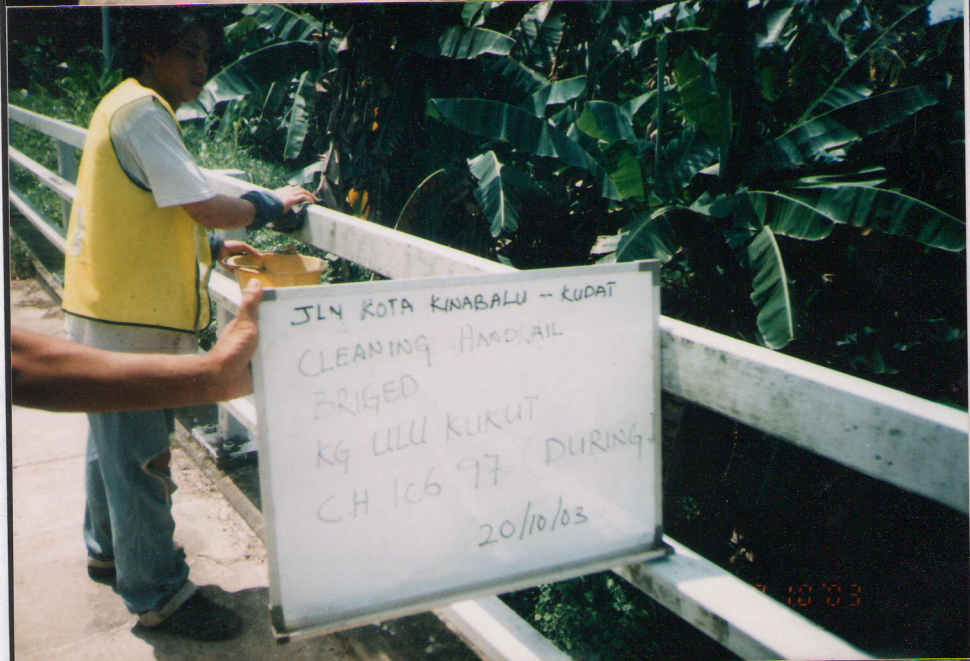 JLN KOTA KINABALU - KUDAT
CLEANING HANDRAIL
BRIGED
KG ULU KUKUT
C.H 106 97 (DURING)
20/10/03
10 '03